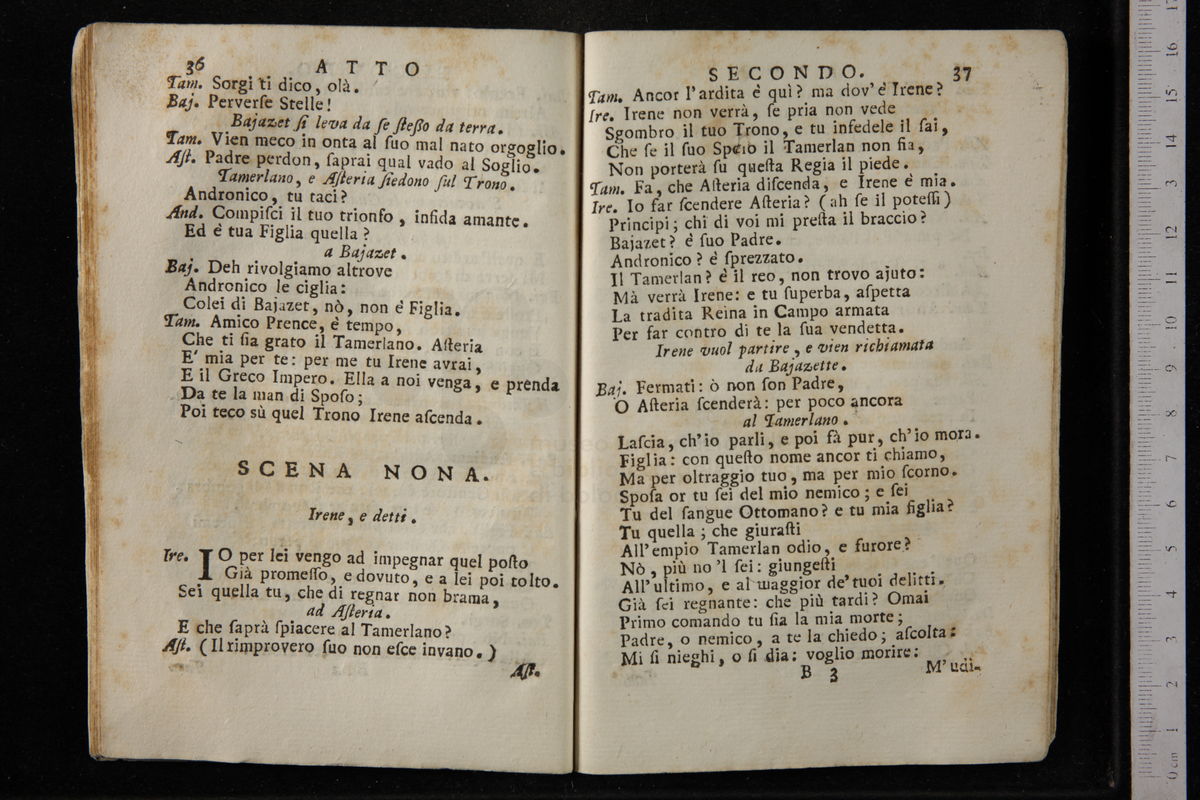 36 ATTO
Tam. Sorgi ti dico, olà.
Baj. Perverſe Stelle!
Bajazet ſi leva da ſe ſteßo da terra.
Tam. Vien meco in onta al ſuo mal nato orgoglio.
Aſt. Padre perdon, ſaprai qual vado al Soglio.
Tamerlano, e Aſteria ſiedono ſul Trono.
Andronico, tu taci?
And. Compiſci il tuo trionfo, infida amante.
Ed è tua Figlia quella?
a Bajazet.
Baj. Deh rivolgiamo altrove
Andronico le ciglia:
Colei di Bajazet, nò, non è Figlia.
Tam. Amico Prence, è tempo,
Che ti ſia grato il Tamerlano. Aſteria
E' mia per te: per me tu Irene avrai,
E il Greco Impero. Ella a noi venga, e prenda
Da te la man di Spoſo;
Poi teco sù quel Trono Irene aſcenda.
SCENA NONA.
Irene, e detti.
Ire. IO per lei vengo ad impegnar quel poſto
Già promeſſo, e dovuto, e a lei poi tolto.
Sei quella tu, che di regnar non brama,
ad Aſteria.
E che ſaprà ſpiacere al Tamerlano?
Aſt. (Il rimprovero ſuo non eſce invano.)
Aſt.
SECONDO. 37
Tam. Ancor l'ardita è quì? ma dov'è Irene?
Ire. Irene non verrà, ſe pria non vede
Sgombro il tuo Trono, e tu infedele il ſai,
Che ſe il ſuo Spoſo il Tamerlan non fia,
Non porterà ſu queſta Regia il piede.
Tam. Fa, che Aſteria diſcenda, e Irene è mia.
Ire. Io far ſcendere Aſteria? (ah ſe il poteſſi)
Principi; chi di voi mi preſta il braccio?
Bajazet? è ſuo Padre.
Andronico? è ſprezzato.
Il Tamerlan? è il reo, non trovo ajuto:
Mà verrà Irene: e tu ſuperba, aſpetta
La tradita Reina in Campo armata
Per far contro di te la ſua vendetta.
Irene vuol partire, e vien richiamata
da Bajazette.
Baj. Fermati: ò non ſon Padre,
O Aſteria ſcenderà: per poco ancora
al Tamerlano.
Laſcia, ch'io parli, e poi fà pur, ch'io mora.
Figlia: con queſto nome ancor ti chiamo,
Ma per oltraggio tuo, ma per mio ſcorno.
Spoſa or tu ſei del mio nemico; e ſei
Tu del ſangue Ottomano? e tu mia figlia?
Tu quella; che giuraſti
All'empio Tamerlan odio, e furore?
Nò, più no 'l ſei: giungeſti
All'ultimo, e al maggior de' tuoi delitti.
Già ſei regnante: che più tardi? Omai
Primo comando tu ſia la mia morte;
Padre, o nemico, a te la chiedo; aſcolta:
Mi ſi nieghi, o ſi dia: voglio morire:
B 3 M'udi-
0 cm 1 2 3 4 5 6 7 8 9 10 11 12 13 14 15 16 17